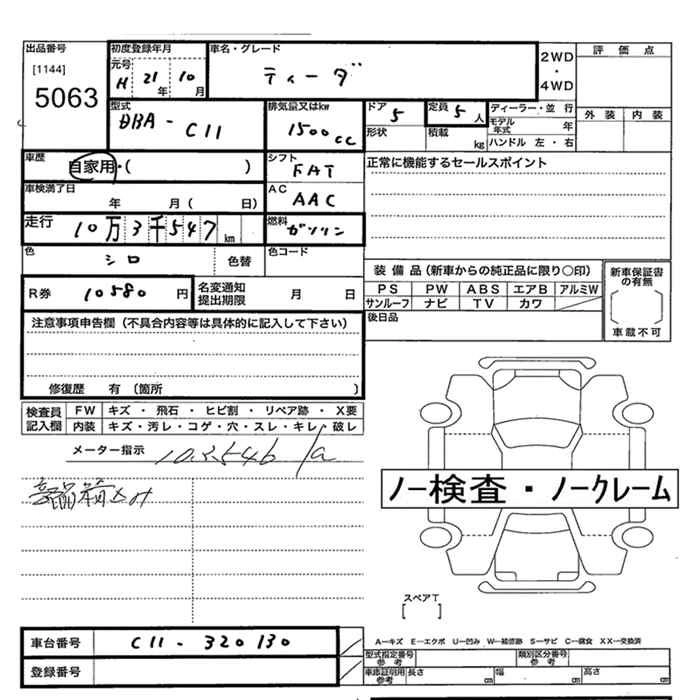 出品番号
[1144]
5063
初度登録年月
元号
H 21 年 10 月
車名・グレード
ティーダ
2WD
・
4WD
評価点
外装 内装
型式
DBA-C11
排気量又はkw
1500cc
ドア
5
形状
定員 5 人
積載 kg
ディーラー・並行
モデル年式 年
ハンドル 左・右
車歴
自家用・( )
シフト
FAT
正常に機能するセールスポイント
車検満了日
年 月( 日)
AC
AAC
走行 10万3千547km
燃料
ガソリン
色
シロ
色替
色コード
R券 10580円
名変通知
提出期限
月 日
装備品(新車からの純正品に限り○印)
PS PW ABS エアB アルミW
サンルーフ ナビ TV カワ
新車保証書
の有無
車載不可
後日品
注意事項申告欄(不具合内容等は具体的に記入して下さい)
修復歴 有〔箇所 〕
検査員
記入欄
FW キズ・飛石・ヒビ割・リペア跡・X要
内装 キズ・汚レ・コゲ・穴・スレ・キレ・破レ
メーター指示
ノー検査・ノークレーム
スペアT
[ ]
車台番号 C11-320130
登録番号
A―キズ E―エクボ U―凹み W―補修跡 S―サビ C―腐食 XX―交換済
型式指定番号
参考
類別区分番号
参考
車庫証明用
参考
長さ cm 幅 cm 高さ cm